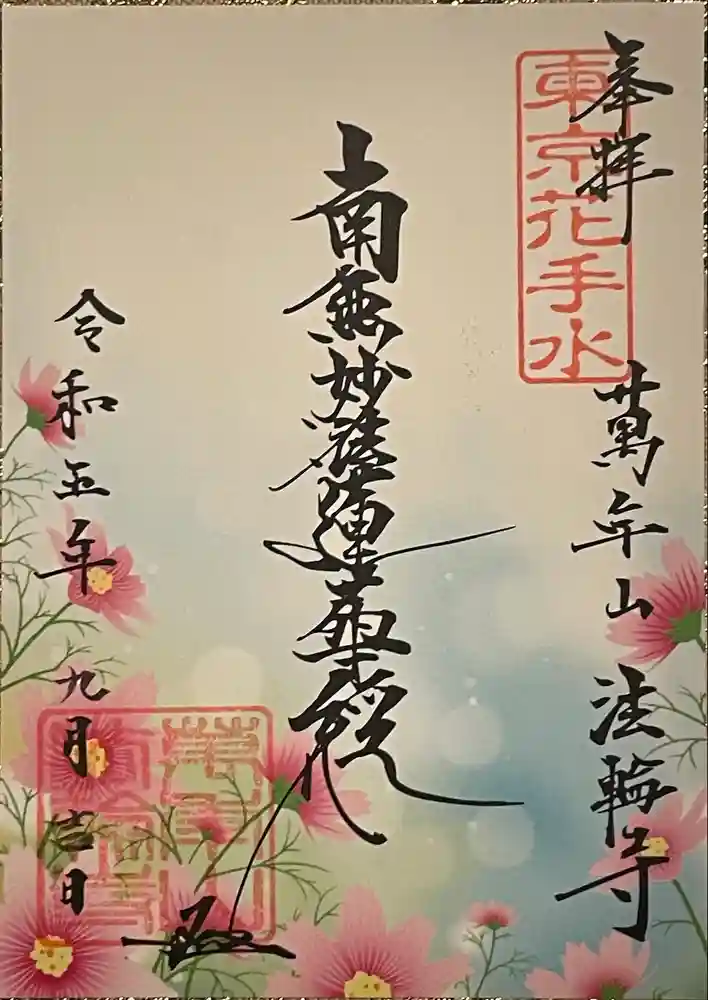 奉拝
東京花手水
萬年山 法輪寺
南無妙法蓮華経
令和五年 九月 吉日